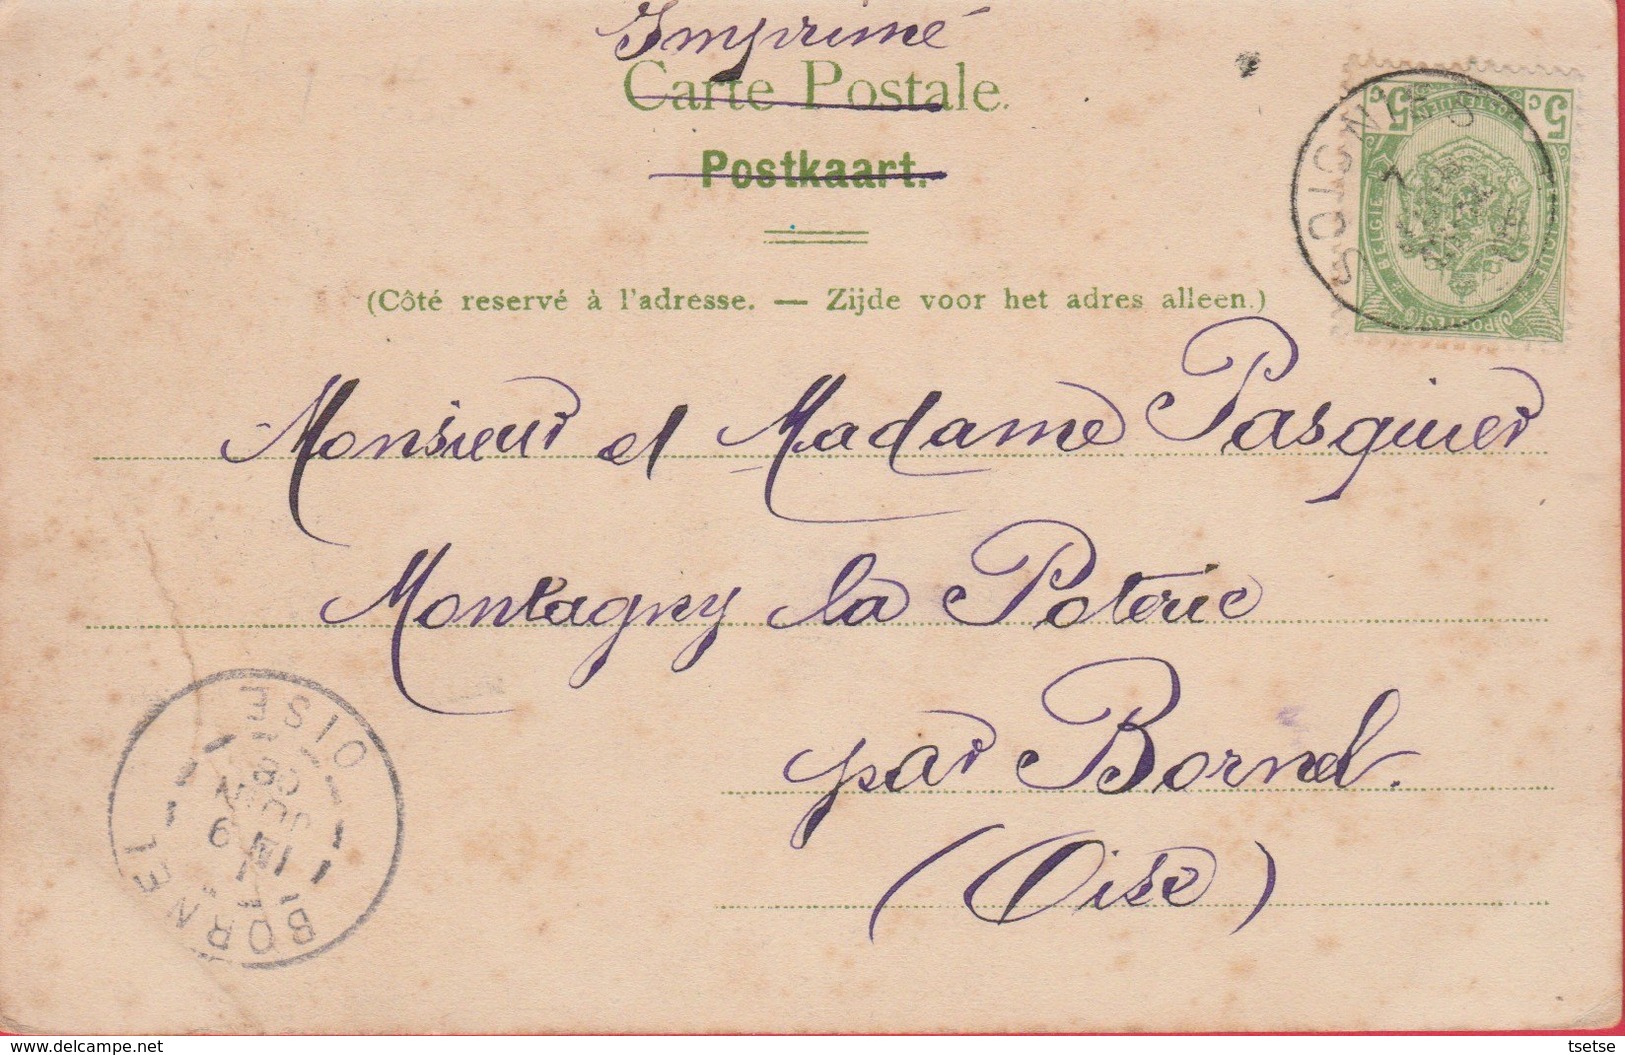 Imprimé
Carte Postale.
Postkaart.
(Côté reservé à l'adresse. — Zijde voor het adres alleen.)
SOIGNIES
5 c 5 c
BELGIE
POSTES
Monsieur et Madame Pasquier
Montagny la Poterie
par Bornel.
(Oise)
BORNEL
OISE
www.delcampe.net
tsetse